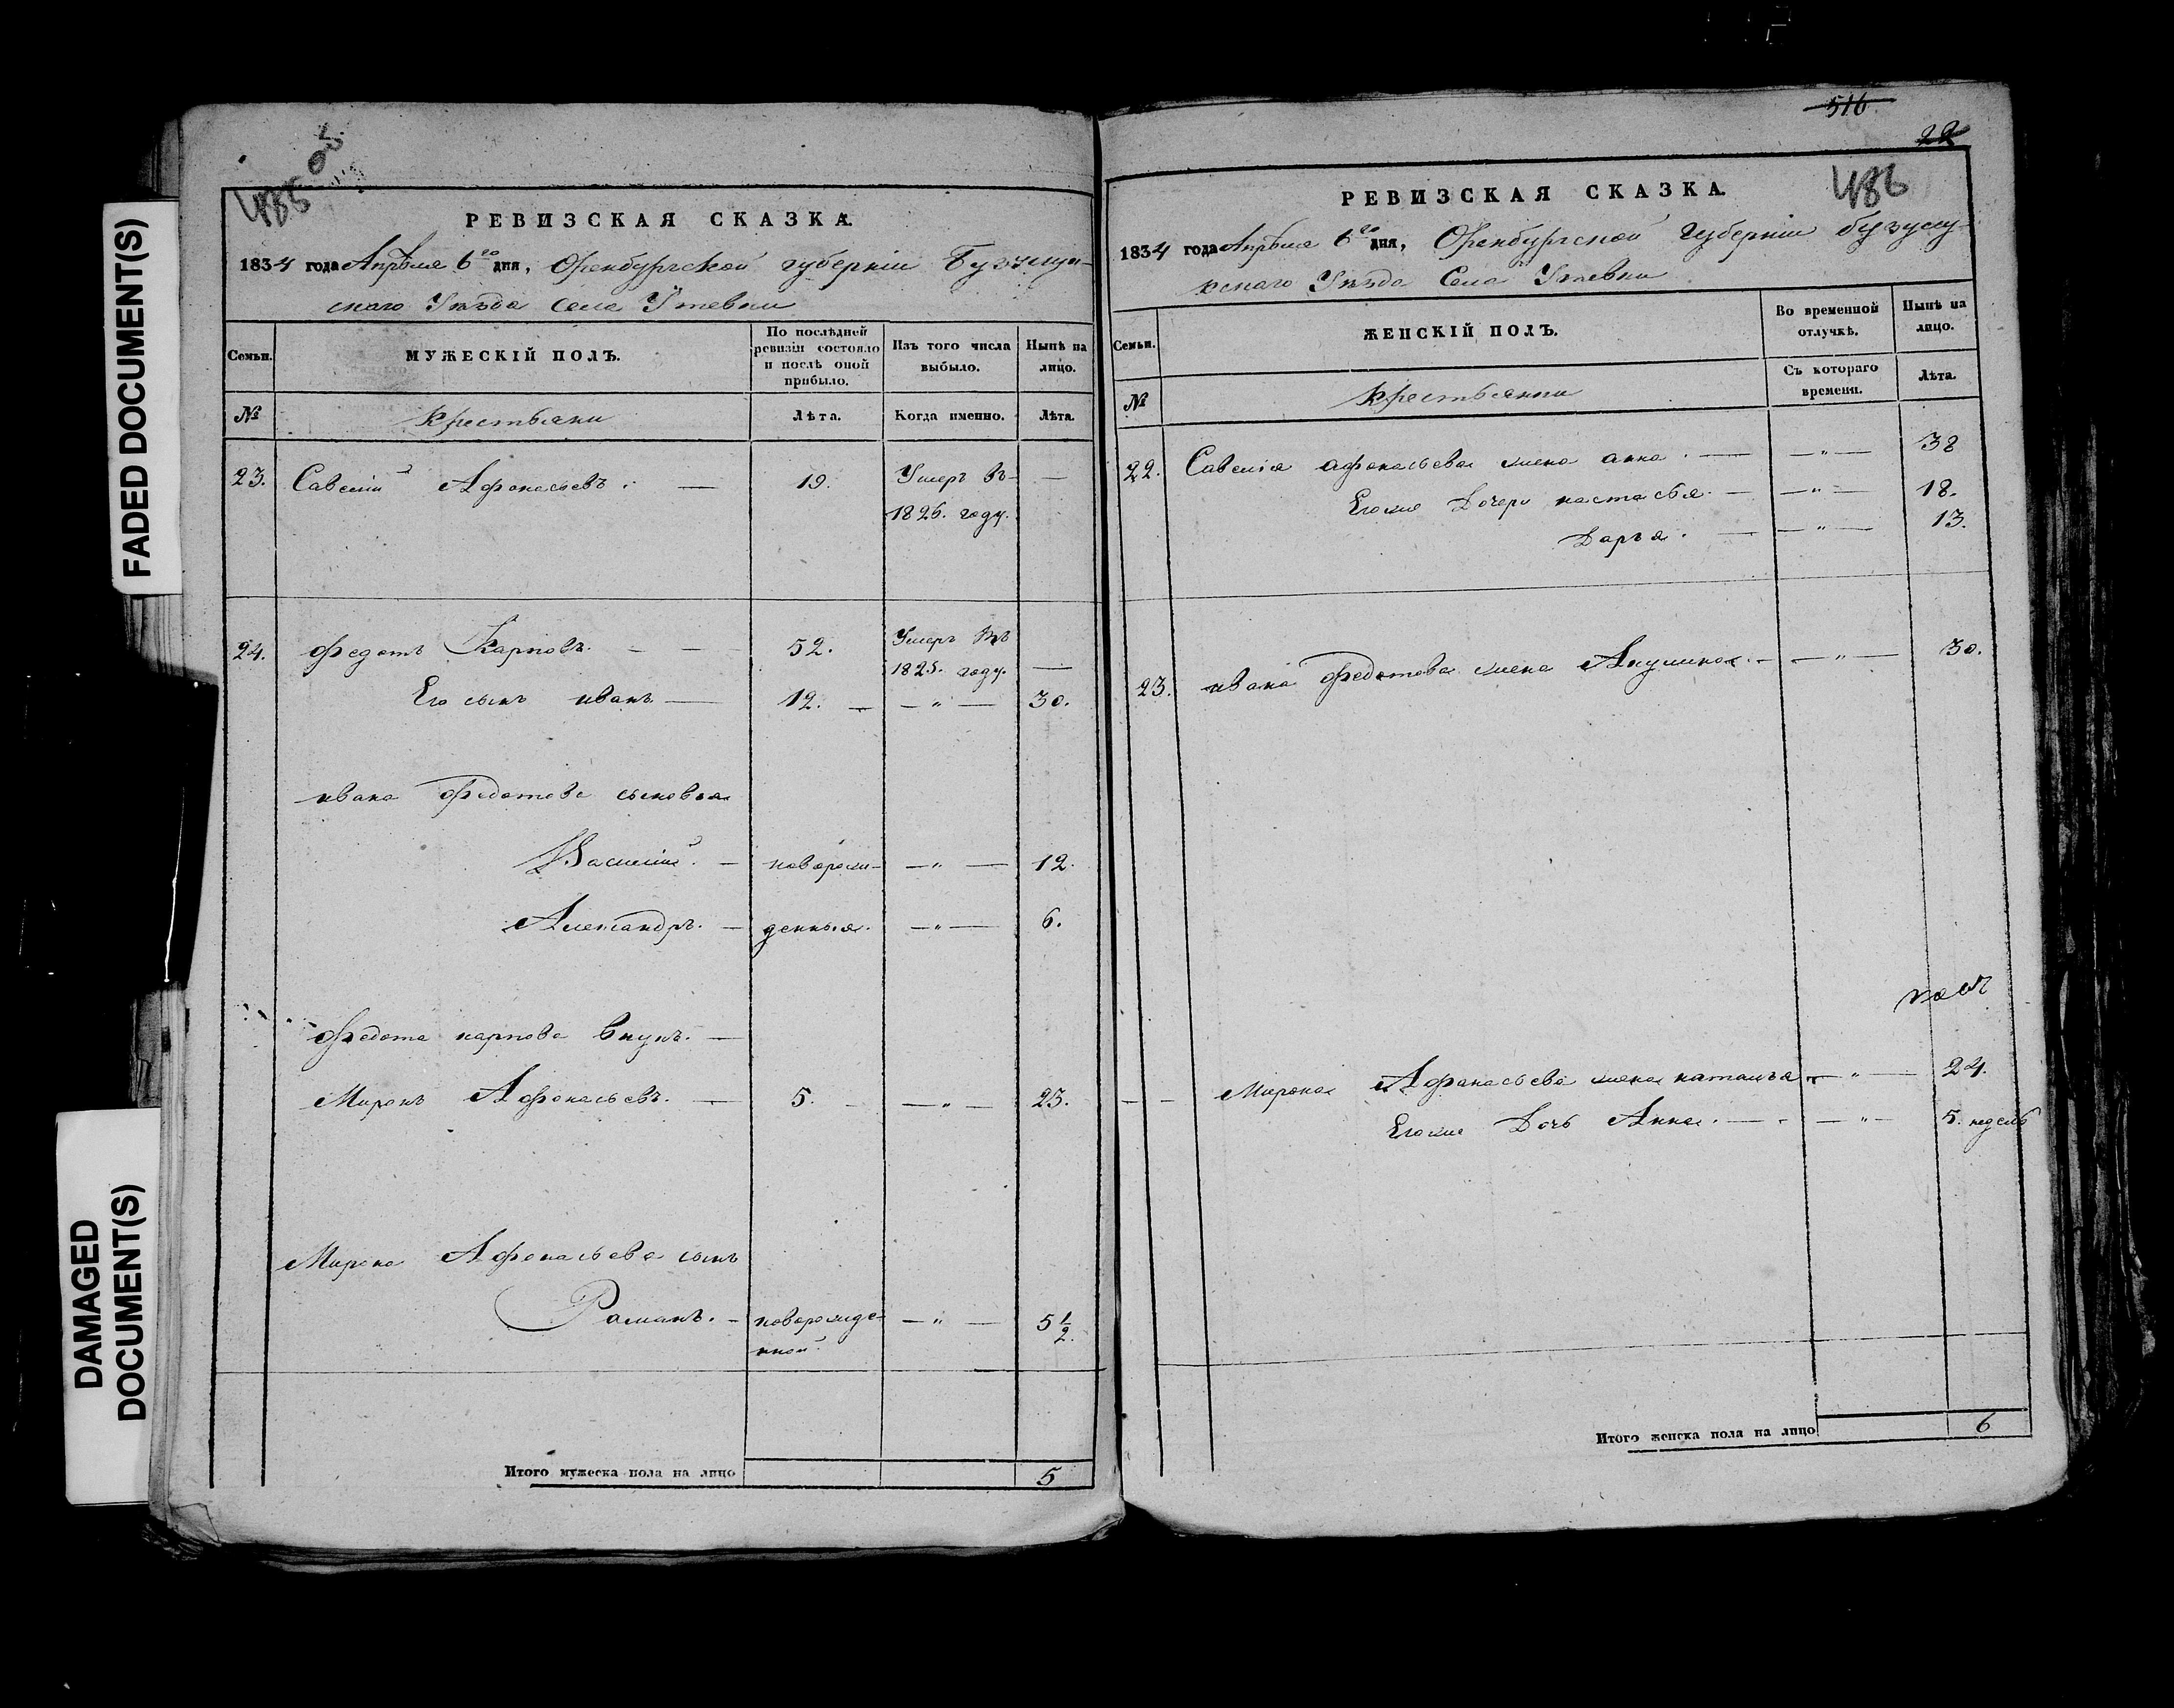 FADED DOCUMENT(S)
DAMAGED
DOCUMENT(S)
485 об.
РЕВИЗСКАЯ СКАЗКА.
1834 года Апрѣля 6го дня, Оренбургской губерніи Бузулук-
скаго Уѣзда Села Утевки
Семьи. МУЖЕСКІЙ ПОЛЪ. По послѣдней ревизіи состояло и послѣ оной прибыло. Изъ того числа выбыло. Нынѣ на лицо.
№ Крестьяни Лѣта. Когда именно. Лѣта.
23. Савелій Афонасьевъ. — 19. Умеръ въ —
1826. году.
24. Федотъ Карповъ. — — 52. Умеръ въ
1825. году. —
Его сынъ иванъ. — 12. — — " — 30.
ивана Федотова сыновья
Василій. — новорож- — " — 12.
Александръ. — денныя. — " — 6.
Федота карпова внукъ. —
Миронъ Афонасьевъ. — 5. — — " — 23.
Мирона Афонасьева сынъ
Романъ. — новорожде- — " — 5 1/2.
нной.
Итого мужеска пола на лицо 5
516
22
486
РЕВИЗСКАЯ СКАЗКА.
1834 года Апрѣля 6го дня, Оренбургской Губерніи бузулу-
кскаго Уѣзда Села Утевки
Семьи. ЖЕНСКІЙ ПОЛЪ. Во временной отлучкѣ. Нынѣ на лицо.
№ Крестьянки Съ котораго времени. Лѣта.
22. Савелія афонасьева жена анна. — — " — 38
Егоже Дочери настасья. — — " — 18.
Дарья. — — " — 13.
23. ивана Федотова жена Акулина. — — " — 30.
— — Мирона Афанасьева жена наталья — " — 24.
Егоже Дочь Анна. — — " — 5. недель
Итого женска пола на лицо 6